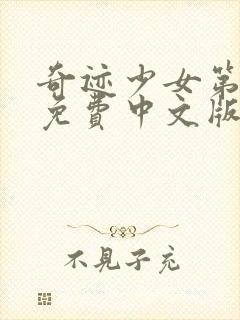 奇迹少女第
免費中文版
不見子充